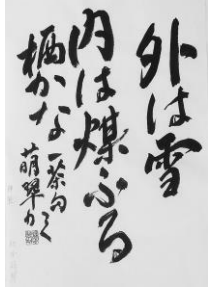 外は雪
内は煤ふる
栖かな
一茶句
萌翠かく